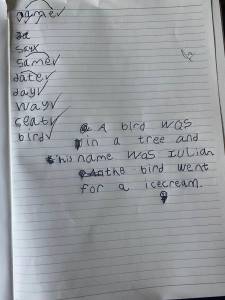 game
sax
same
date
day
way
seat
bird
A bird was
in a tree and
his name was Iulian
the bird went
for a icecream.